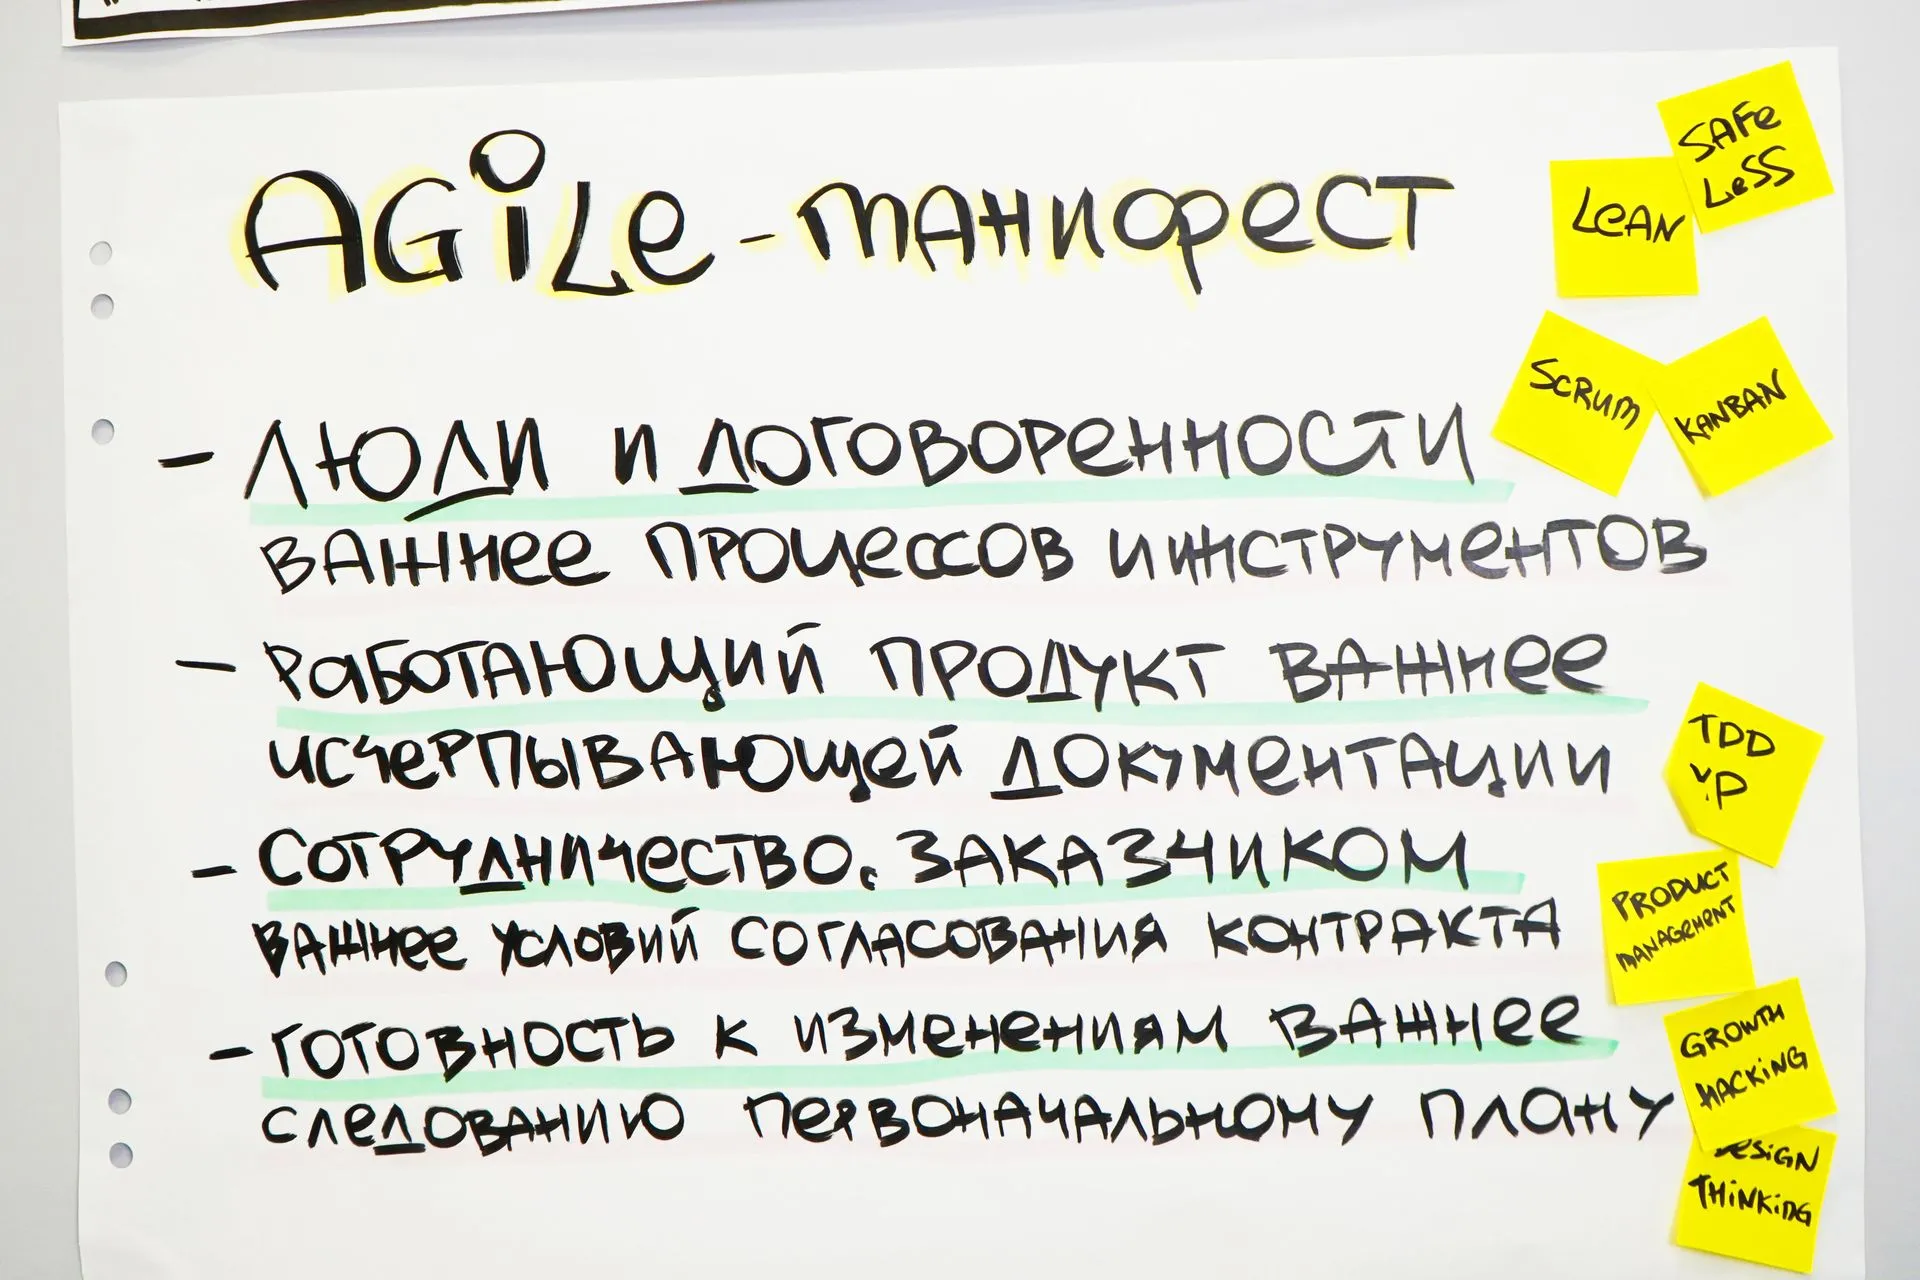 AGiLe - манифест
SAFe
LeSS
LeAN
SCRUM
KANBAN
- Люди и договоренности
важнее процессов и инструментов
- Работающий продукт важнее
исчерпывающей документации
TDD
- Сотрудничество с заказчиком
важнее условий согласования контракта
PRODUCT
MANAGEMENT
- Готовность к изменениям важнее
следованию первоначальному плану
GROWTH
HACKiNG
DESiGN
THiNKiNG